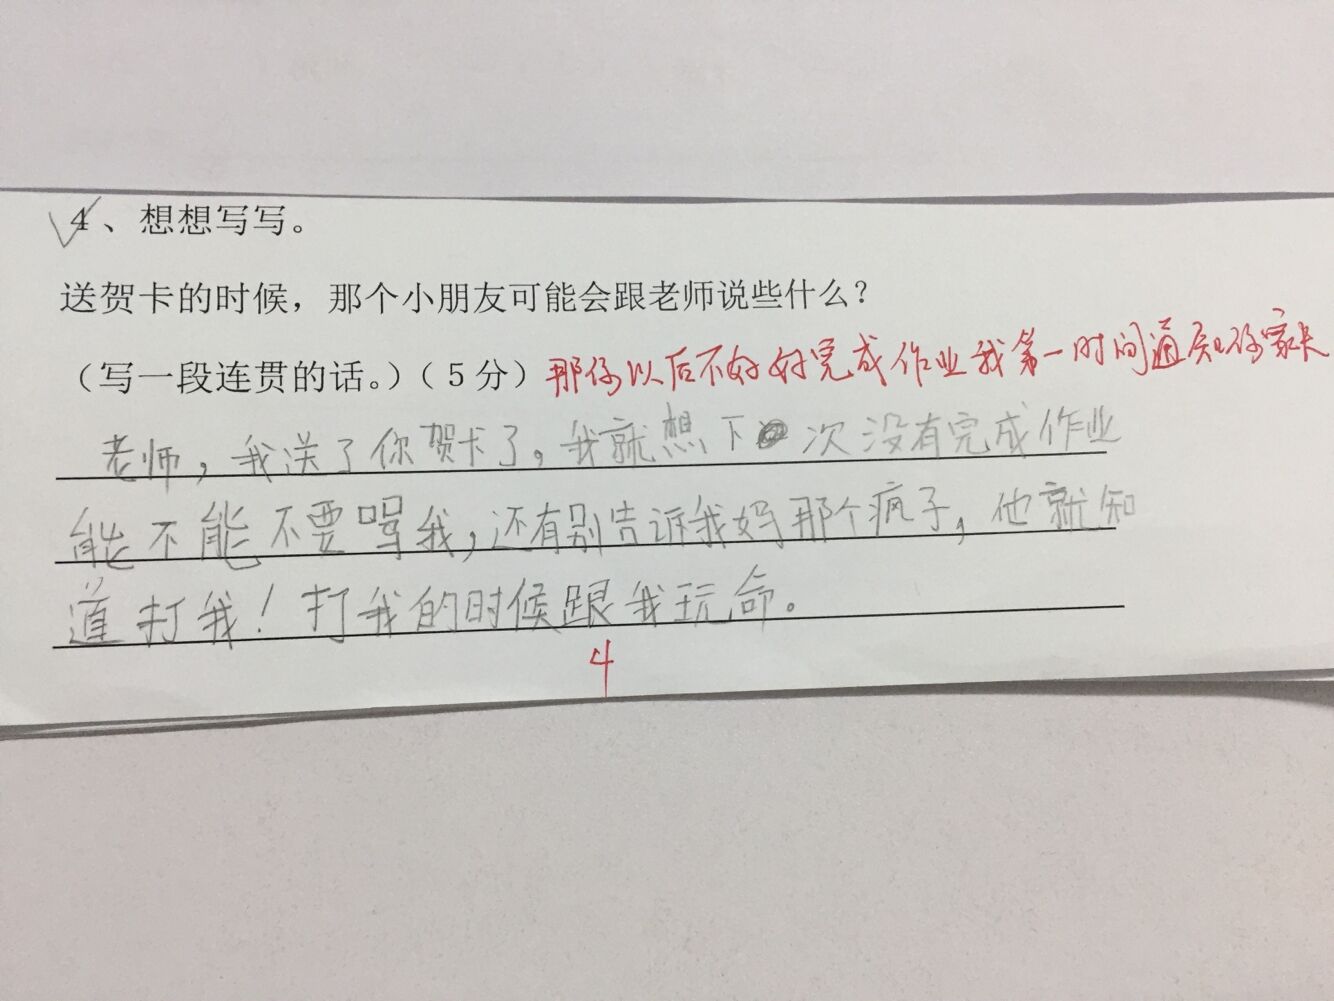 4、想想写写。
送贺卡的时候，那个小朋友可能会跟老师说些什么？
（写一段连贯的话。）（5分）那你以后不好好完成作业我第一时间通知你家长
老师，我送了你贺卡了。我就想下次没有完成作业
能不能不要骂我，还有别告诉我妈那个疯子，他就知
道打我！打我的时候跟我玩命。
4